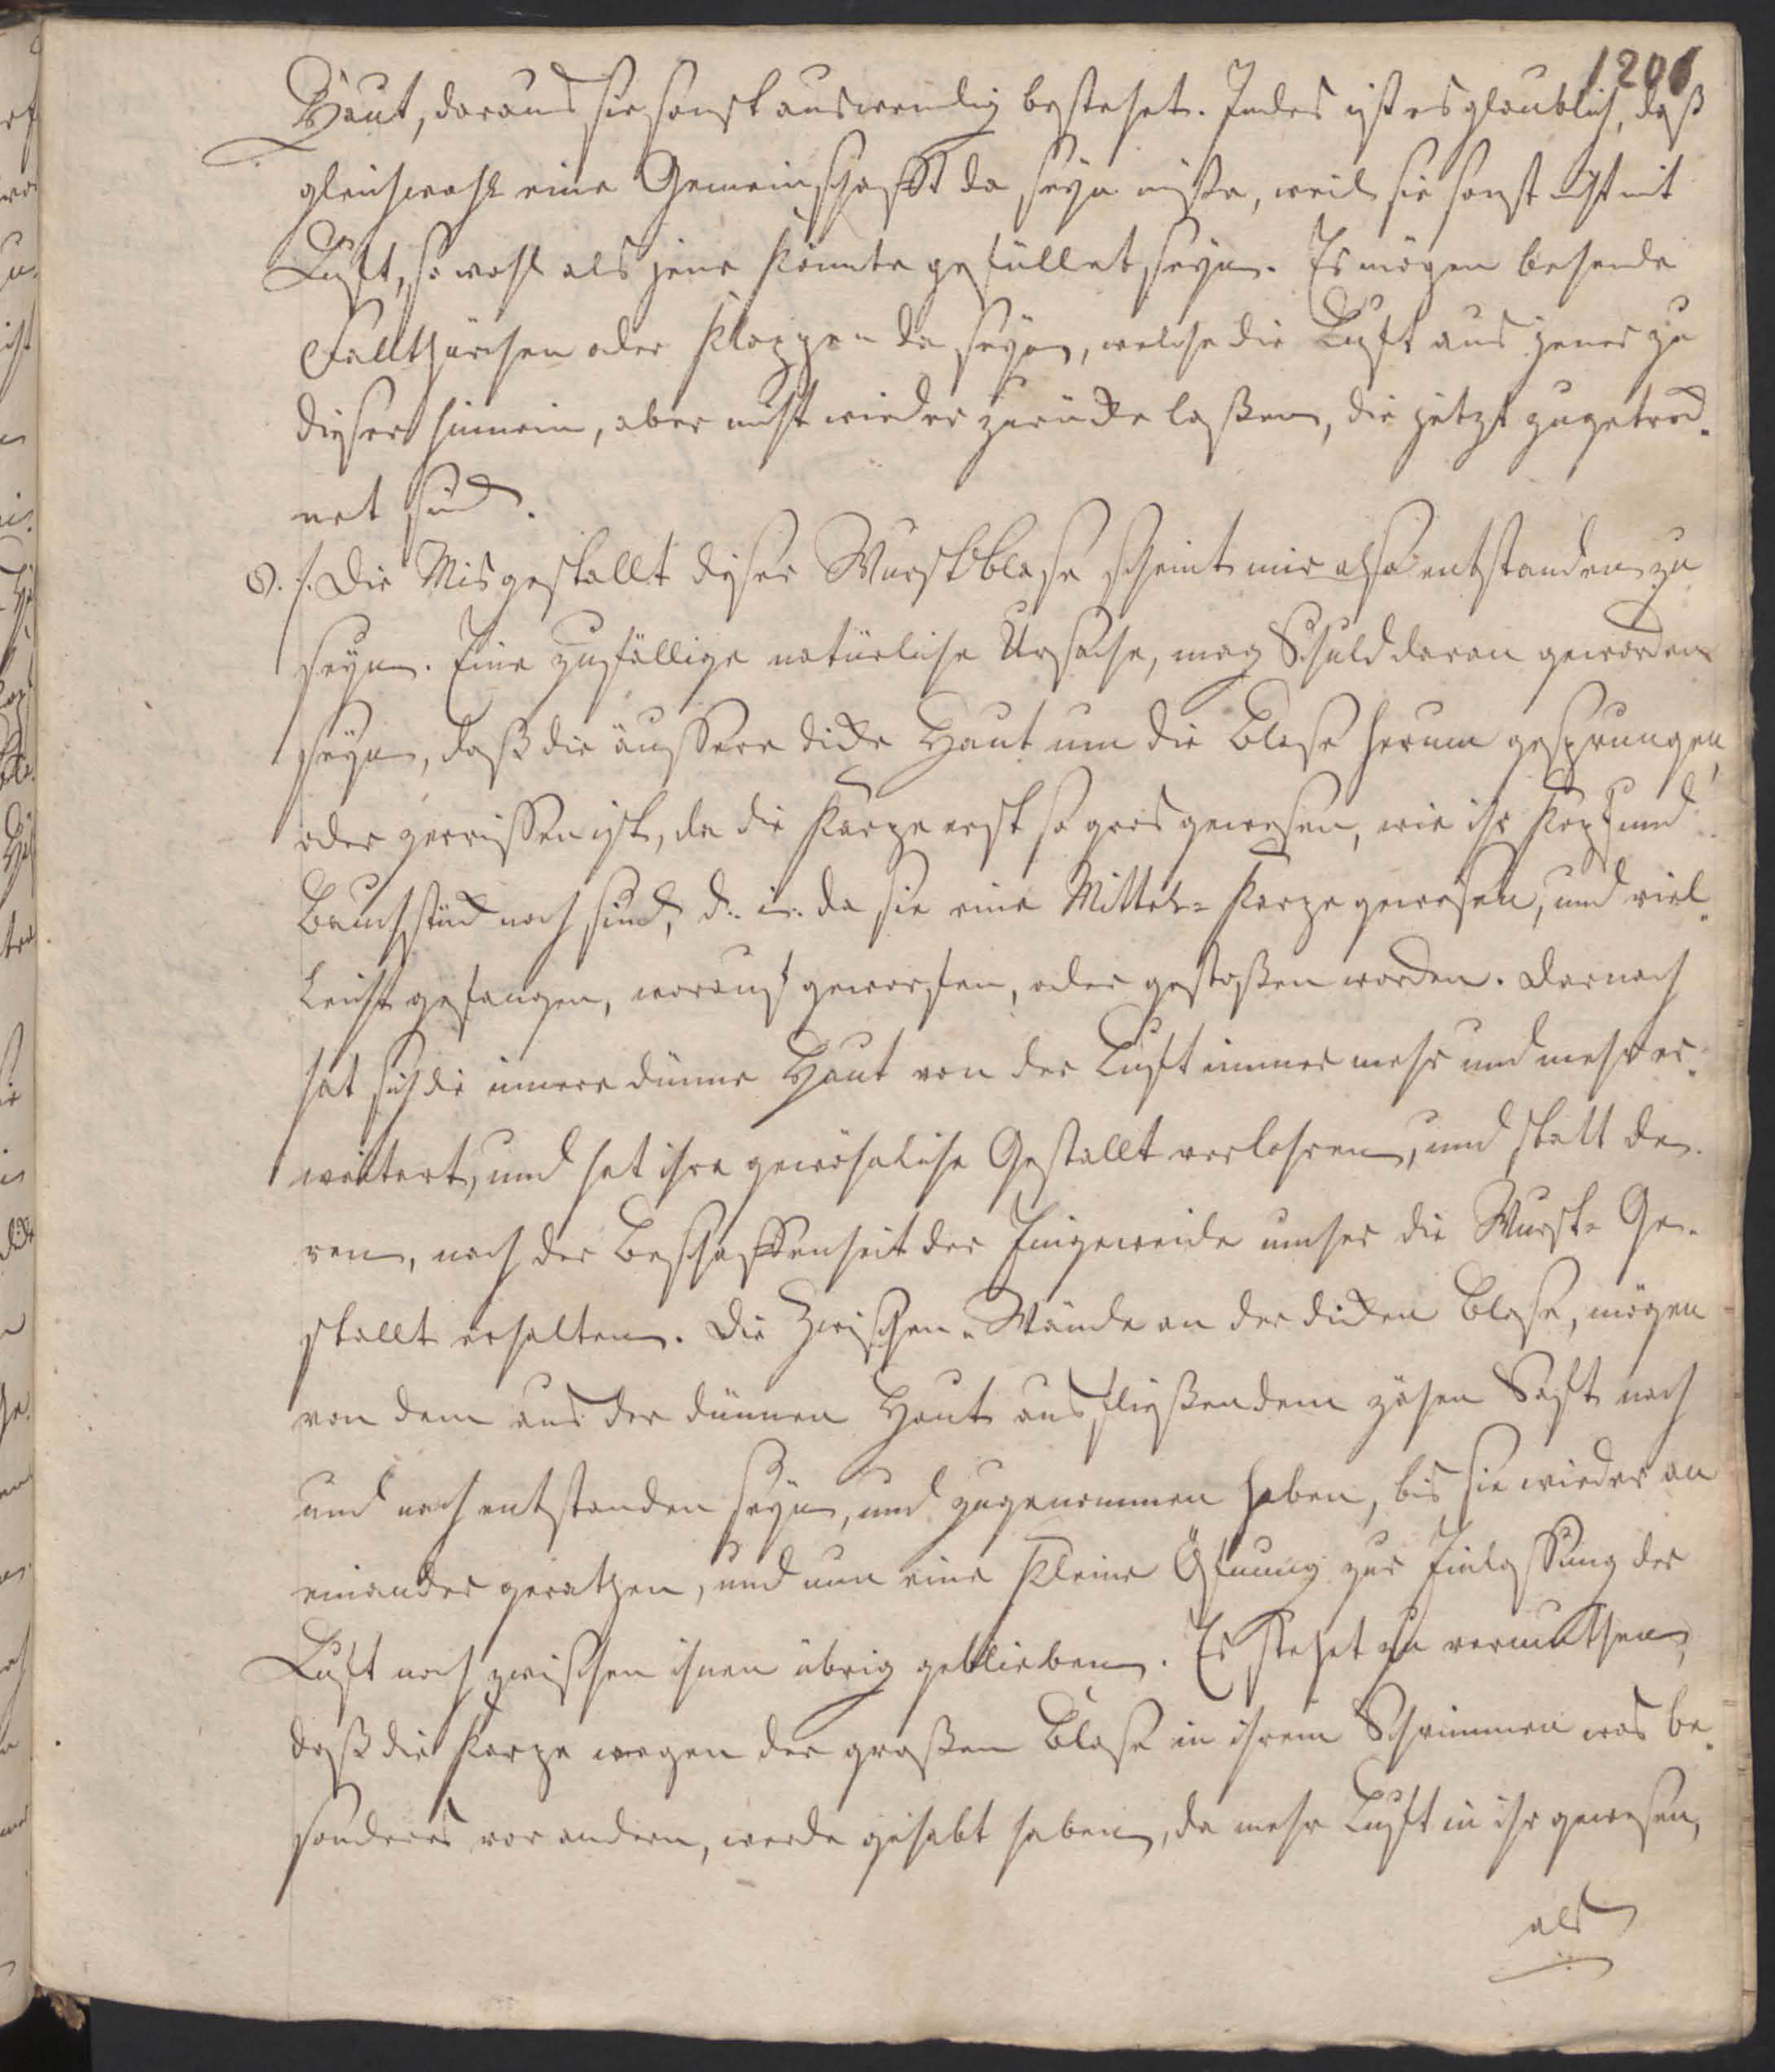 1201
Haut, daraus sie sonst auswendig bestehet. Indes ist es glaublich, daß
gleichwohl eine Gemeinschafft da seyn müße, weil sie sonst nicht mit
Luft, so wohl als jene könnte gefüllet seyn. Es mögen behende
Fallthürchen oder Klappen da seyn, welche die Luft aus jener zu
dieser hinnein, aber nicht wieder zurücke laßen, die jetzt zugetrock-
net sind.
8. /. Die Misgestallt dieser Wurstblase scheint mir also entstanden zu
seyn. Eine zufällige natürliche Ursache, mag Schuld daran geworden
seyn, daß die äussere dicke Haut um die Blase herum gesprungen,
oder zerrissen ist, da die Karpe erst so gros gewesen, wie ihr Kopf und
Bauchstück noch sind, d. i. da sie eine Mittel-Karpe gewesen, und viel-
leicht gefangen, worauf geworfen, oder gestoßen worden. Darnach
hat sich die innere dünne Haut von der Luft immer mehr und mehr er-
weitert, und hat ihre gewöhnliche Gestallt verlohren, und statt de-
ren, nach der Beschaffenheit der Eingeweide umher die Wurst-Ge-
stallt erhalten. Die Zwischen-Wände an der dicken Blase, mögen
von dem aus der dünnen Haut ausfließendem zähen Saft nach
und nach entstanden seyn, und zugenommen haben, bis sie wieder an
einander gerathen, und nun eine kleine Öfnung zur Einlassung der
Luft noch zwischen ihnen übrig geblieben. Es stehet zu vermuthen,
daß die Karpe wegen der großen Blase in ihrem Schwimmen was be-
sonderes vor andern, werde gehabt haben, da mehr Luft in ihr gewesen,
als